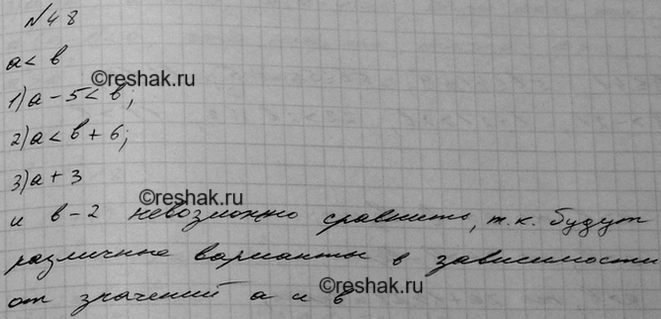 №48
a < b
©reshak.ru
1) a - 5 < b;
2) a < b + 6;
3) a + 3
©reshak.ru
и b - 2 невозможно сравнить, т.к. будут
различные варианты в зависимости
©reshak.ru
от значений a и b